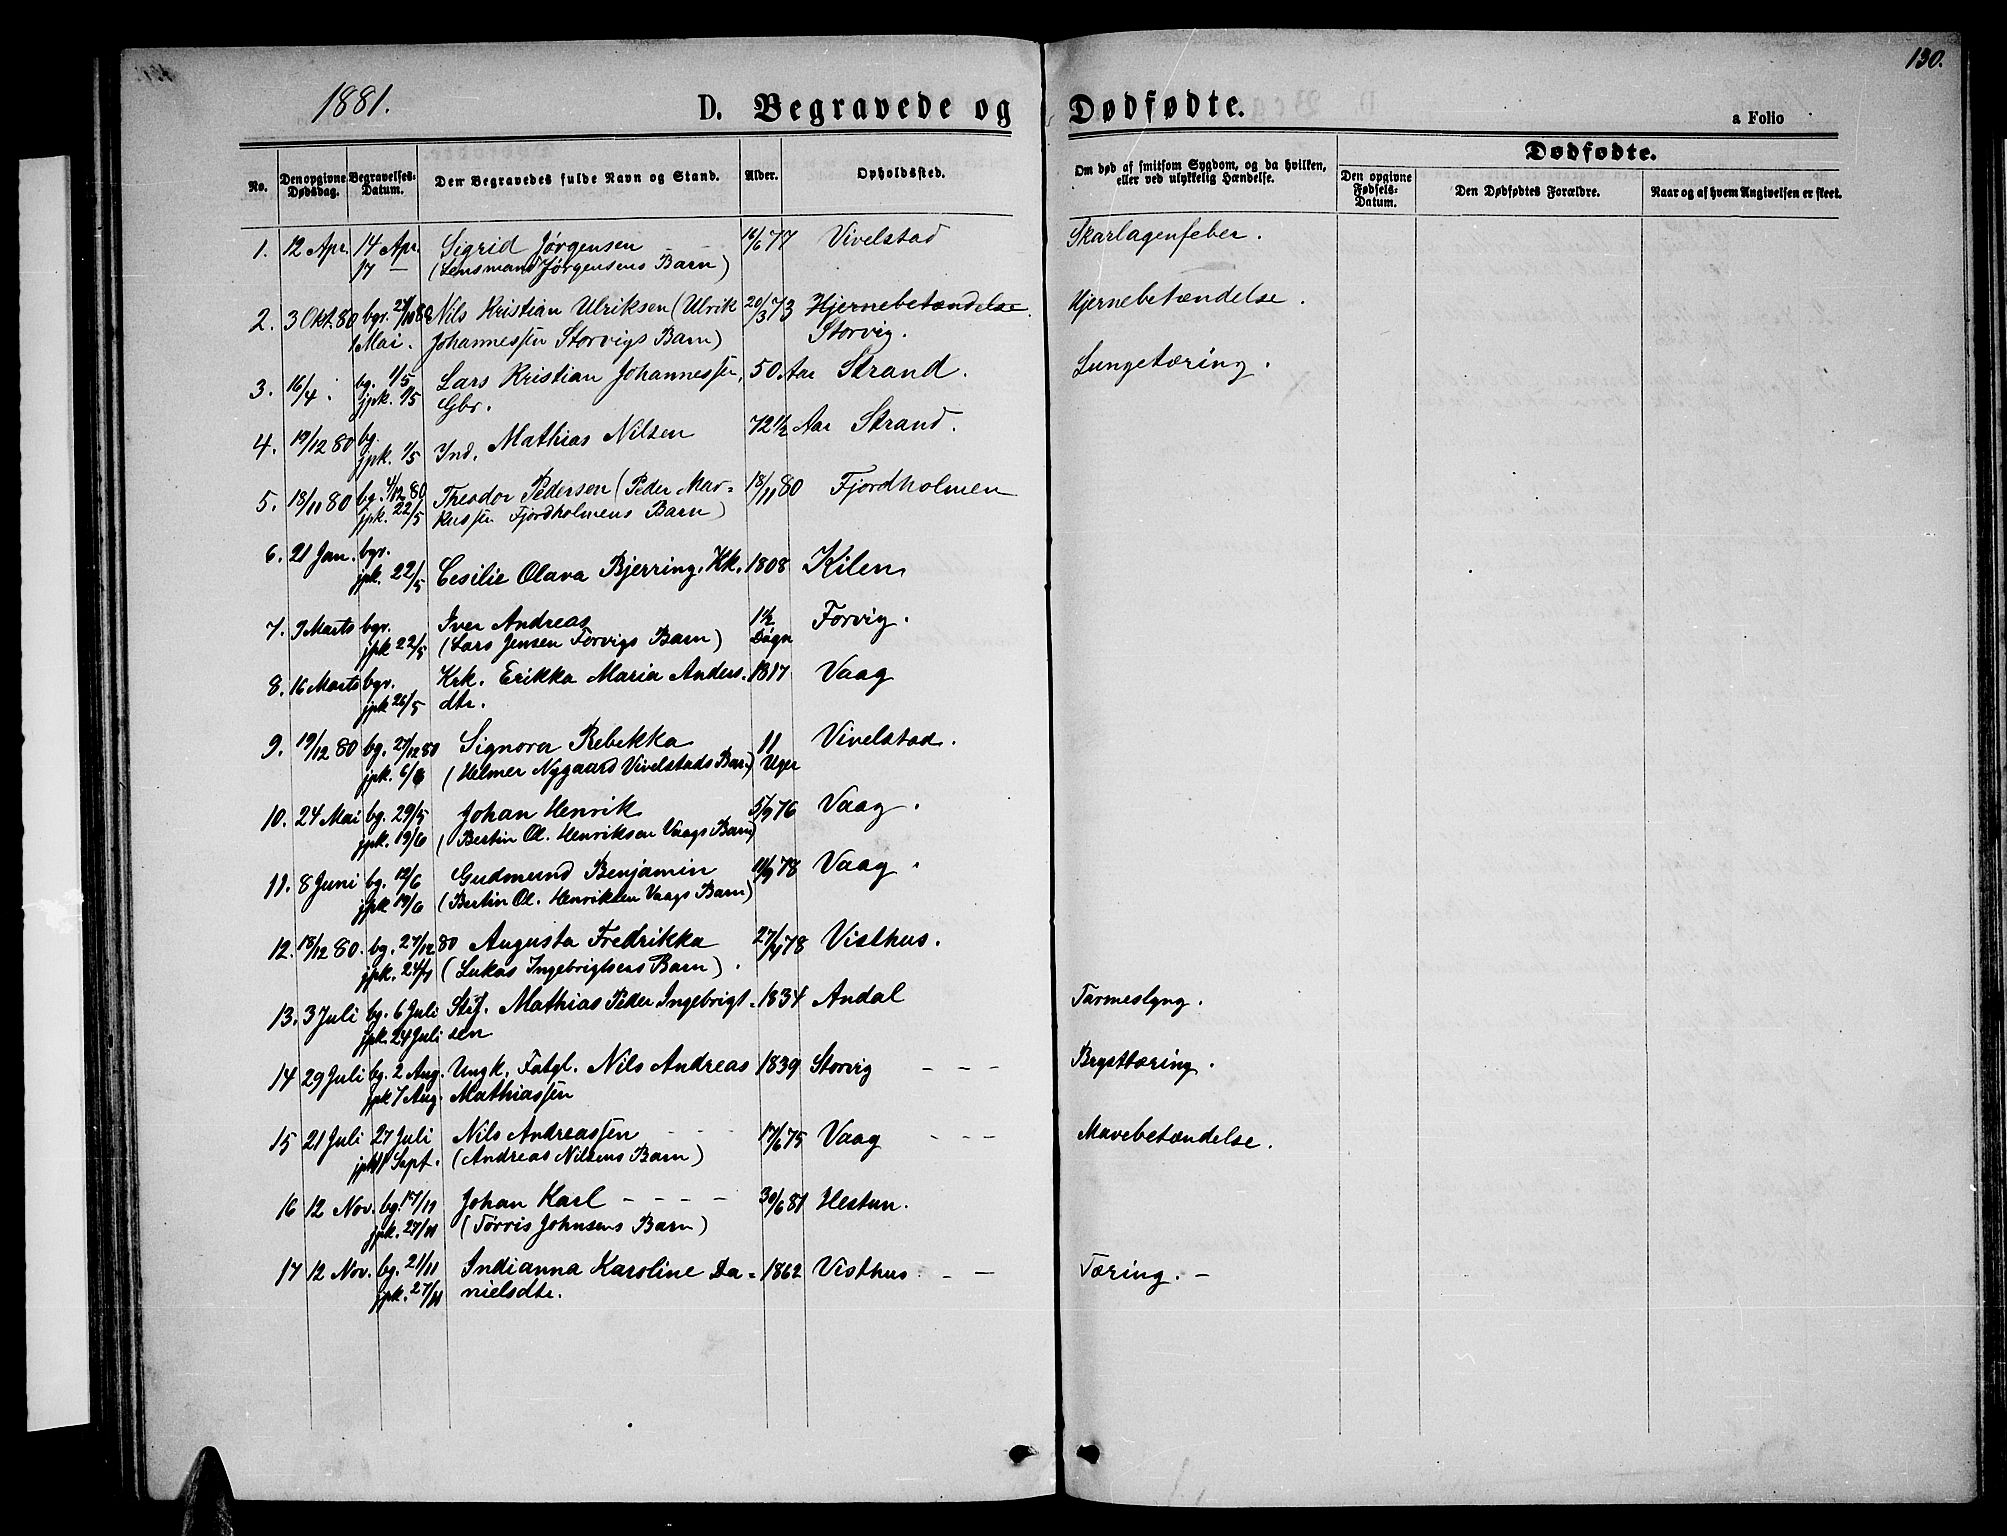 130.
1881.
D. Begravede og Dødfødte.
a Folio
No. Den opgivne Dødsdag. Begravelses-Datum. Den Begravedes fulde Navn og Stand. Alder. Opholdssted. Om død af smitsom Sygdom, og da hvilken, eller ved ulykkelig Hændelse. Dødfødte.
Den opgivne Fødsels-Datum. Den Dødfødtes Forældre. Naar og af hvem Angivelsen er skeet.
1. 12 Apr. 14 Apr. Sigrid Jørgensen 16/6 77 Vivelstad Skarlagenfeber.
17 — (Lensmand Jørgensens Barn)
2. 3 Okt. 80 bgr. 27/10 80 Nils Kristian Ulriksen (Ulrik 20/3 73 Hjernebetændelse Hjernebetændelse.
1 Mai. Johannessen Storvigs Barn) Storvig.
3. 16/4. bg. 1/5 Lars Kristian Johannessen, 50 Aar Strand. Lungetæring.
jpk. 1/5 Gbr.
4. 19/12 80 bg. Ind. Mathias Nilsen 72 1/2 Aar Strand.
jpk. 1/5
5. 18/11 80 bg. 4/12 80 Theodor Pedersen (Peder Mar= 18/11 80 Fjordholmen
jpk. 22/5 kussen Fjordholmens Barn)
6. 21 Jan. bgr. Cesilie Olava Bjerring, Kk. 1808 Kilen
jpk. 22/5
7. 9 Marts bgr. Iver Andreas 1 1/2 Døgn Forvig.
jpk 22/5 (Lars Jensen Forvigs Barn)
8. 16 Marts bgr. Krk. Erikka Maria Anders- 1817 Vaag
jpk 26/5 dtr.
9. 19/12 80 bg. 27/12 80 Signora Rebekka 11 Uger Vivelstad.
jpk. 6/6 (Helmer Nygaard Vivelstads Barn)
10. 24 Mai bg. 29/5 Johan Henrik 5/9 76 Vaag.
jpk. 19/6 (Bertin Ol. Henriksen Vaags Barn)
11. 8 Juni bg. 12/6 Gudmund Benjamin 11/9 78 Vaag.
jpk 19/6 (Bertin Ol. Henriksen Vaags Barn)
12. 18/12 80. bg. 27/12 80 Augusta Fredrikka 27/4 78 Visthus.
jpk. 24/7 (Lukas Ingebrigtsens Barn).
13. 3 Juli bg. 6 Juli Stif. Mathias Peder Ingebrigt- 1834 Andal Tarmeslyng.
jpk. 24 Juli sen
14 29 Juli bg. 2 Aug. Ungk. Fatgl. Nils Andreas 1839 Storvig — — — Brysttæring.
jpk 7 Aug. Mathiassen
15 21 Juli 27 Juli Nils Andreassen 17/6 75 Vaag — — — Mavebetændelse.
jpk 11 Sept. (Andreas Nilsens Barn)
16 12 Nov. bg. 17/11 Johan Karl — — — — 30/6 81 Hestun.
jpk. 27/11 (Tørris Johnsens Barn)
17 12 Nov. bg. 21/11 Indianna Karoline Da= 1862 Visthus. — — Tæring. —
jpk. 27/11 nielsdtr.